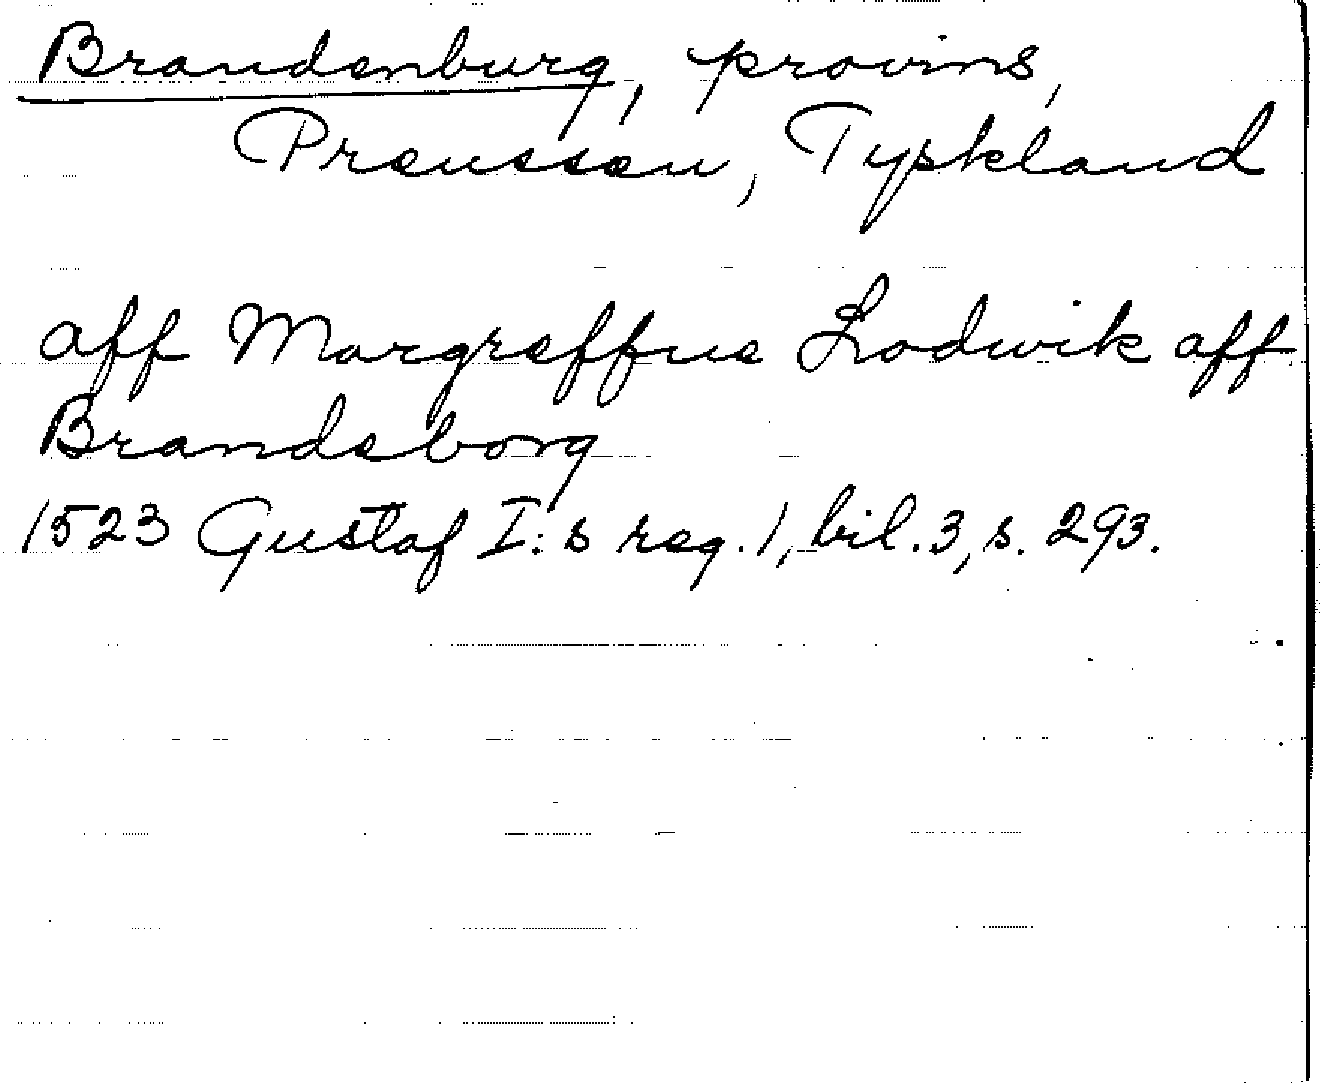 Brandenburg, provins,
Preussen, Tyskland
aff Margreffue Lodwik aff
Brandeborg
1523 Gustaf I:s reg. 1, bil. 3, s. 293.